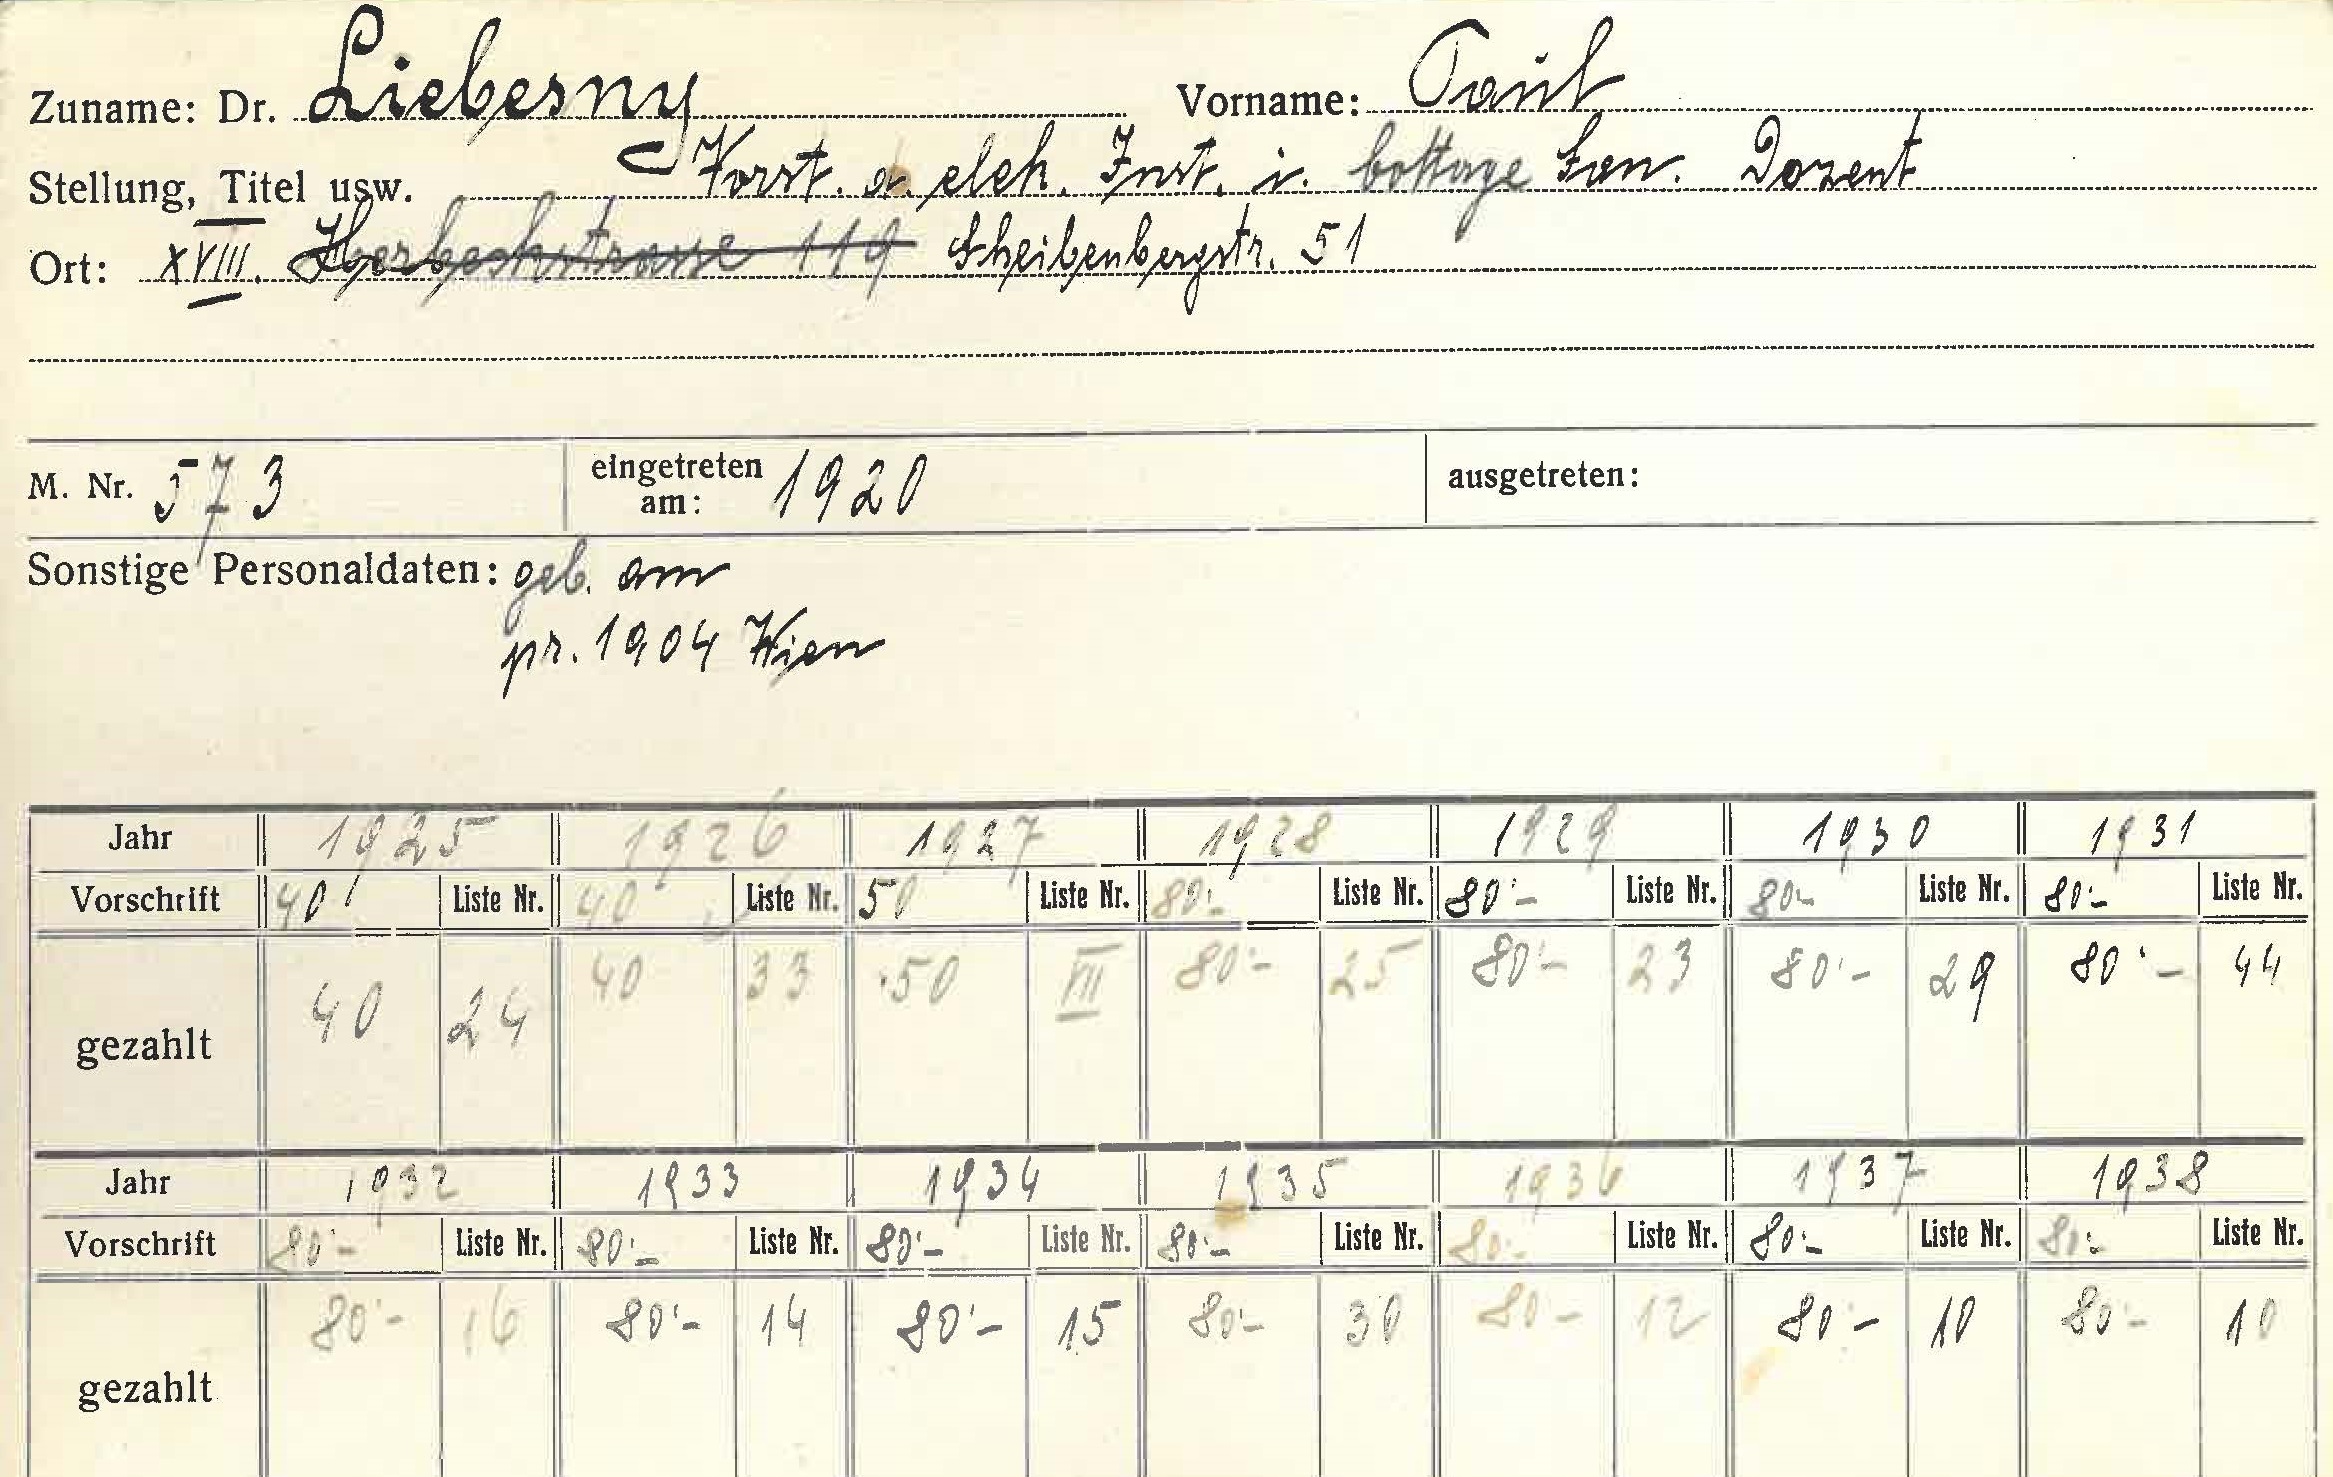 Zuname: Dr. Liebesny Vorname: Paul
Stellung, Titel usw. Vorst. d. elek. Inst. i. Cottage San. Dozent
Ort: XVIII. Herbeckstrasse 119 Scheibenbergstr. 51
M. Nr. 573 eingetreten am: 1920 ausgetreten:
Sonstige Personaldaten: geb. am
pr. 1904 Wien
Jahr 1925 1926 1927 1928 1929 1930 1931
Vorschrift 40 Liste Nr. 40 Liste Nr. 50 Liste Nr. 80·– Liste Nr. 80·– Liste Nr. 80·– Liste Nr. 80·– Liste Nr.
gezahlt 40 24 40 33 50 VII 80·– 25 80·– 23 80·– 29 80·– 44
Jahr 1932 1933 1934 1935 1936 1937 1938
Vorschrift 80·– Liste Nr. 80·– Liste Nr. 80·– Liste Nr. 80·– Liste Nr. 80·– Liste Nr. 80·– Liste Nr. 80·– Liste Nr.
gezahlt 80·– 16 80·– 14 80·– 15 80·– 30 80·– 12 80·– 10 80·– 10